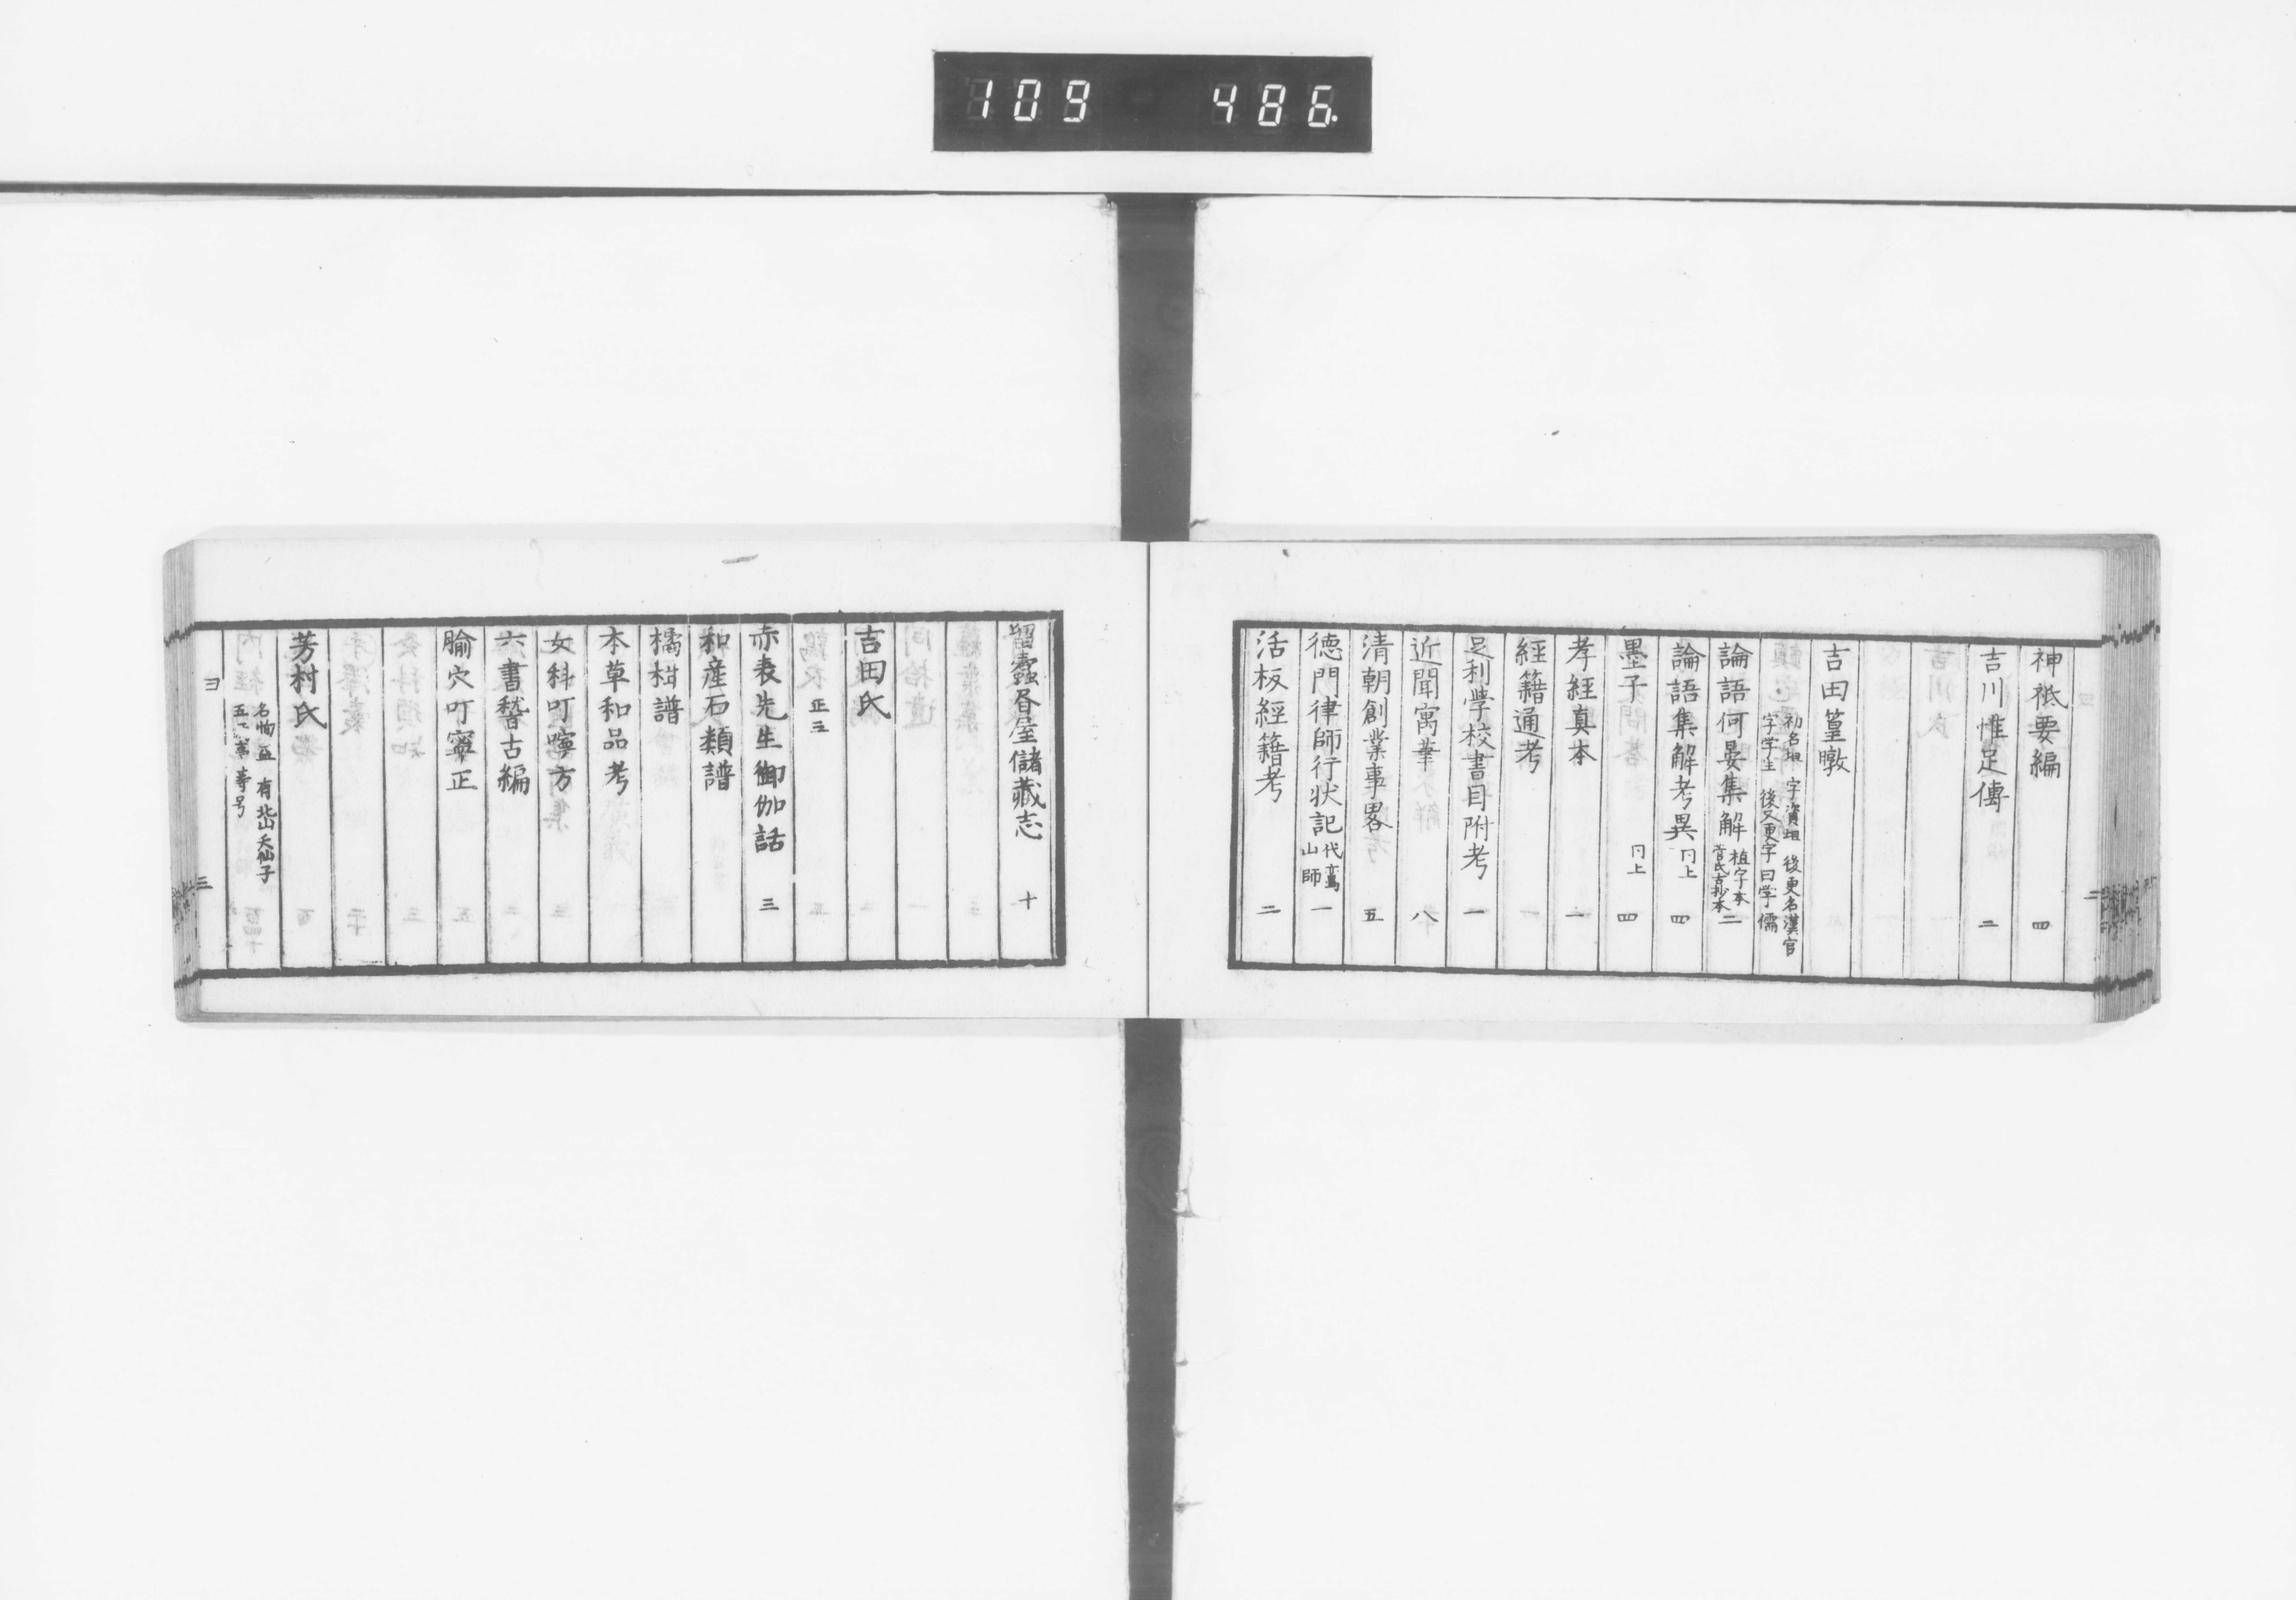 109 486.
神祇要編 四
吉川惟足傳 二
吉田篁墩
初名坦 字資坦 後更名漢宦
字学生 後又更字曰学儒
論語何晏集解 植字本 菅氏古抄本 二
論語集解考異 同上 四
墨子 同上 四
孝經真本 一
經籍通考
足利学校書目附考 一
近聞寓筆 八
清朝創業事畧 五
德門律師行状記 代鸞山師 一
活板經籍考 二
留蠹昏屋儲藏志 十
吉田氏
正三
赤表先生御伽話 三
和産石類譜
橘柑譜
本草和品考
女科叮嚀方
六書稽古編
腧穴叮寧正
芳村氏
名恂益 有
等号
ヨ
三